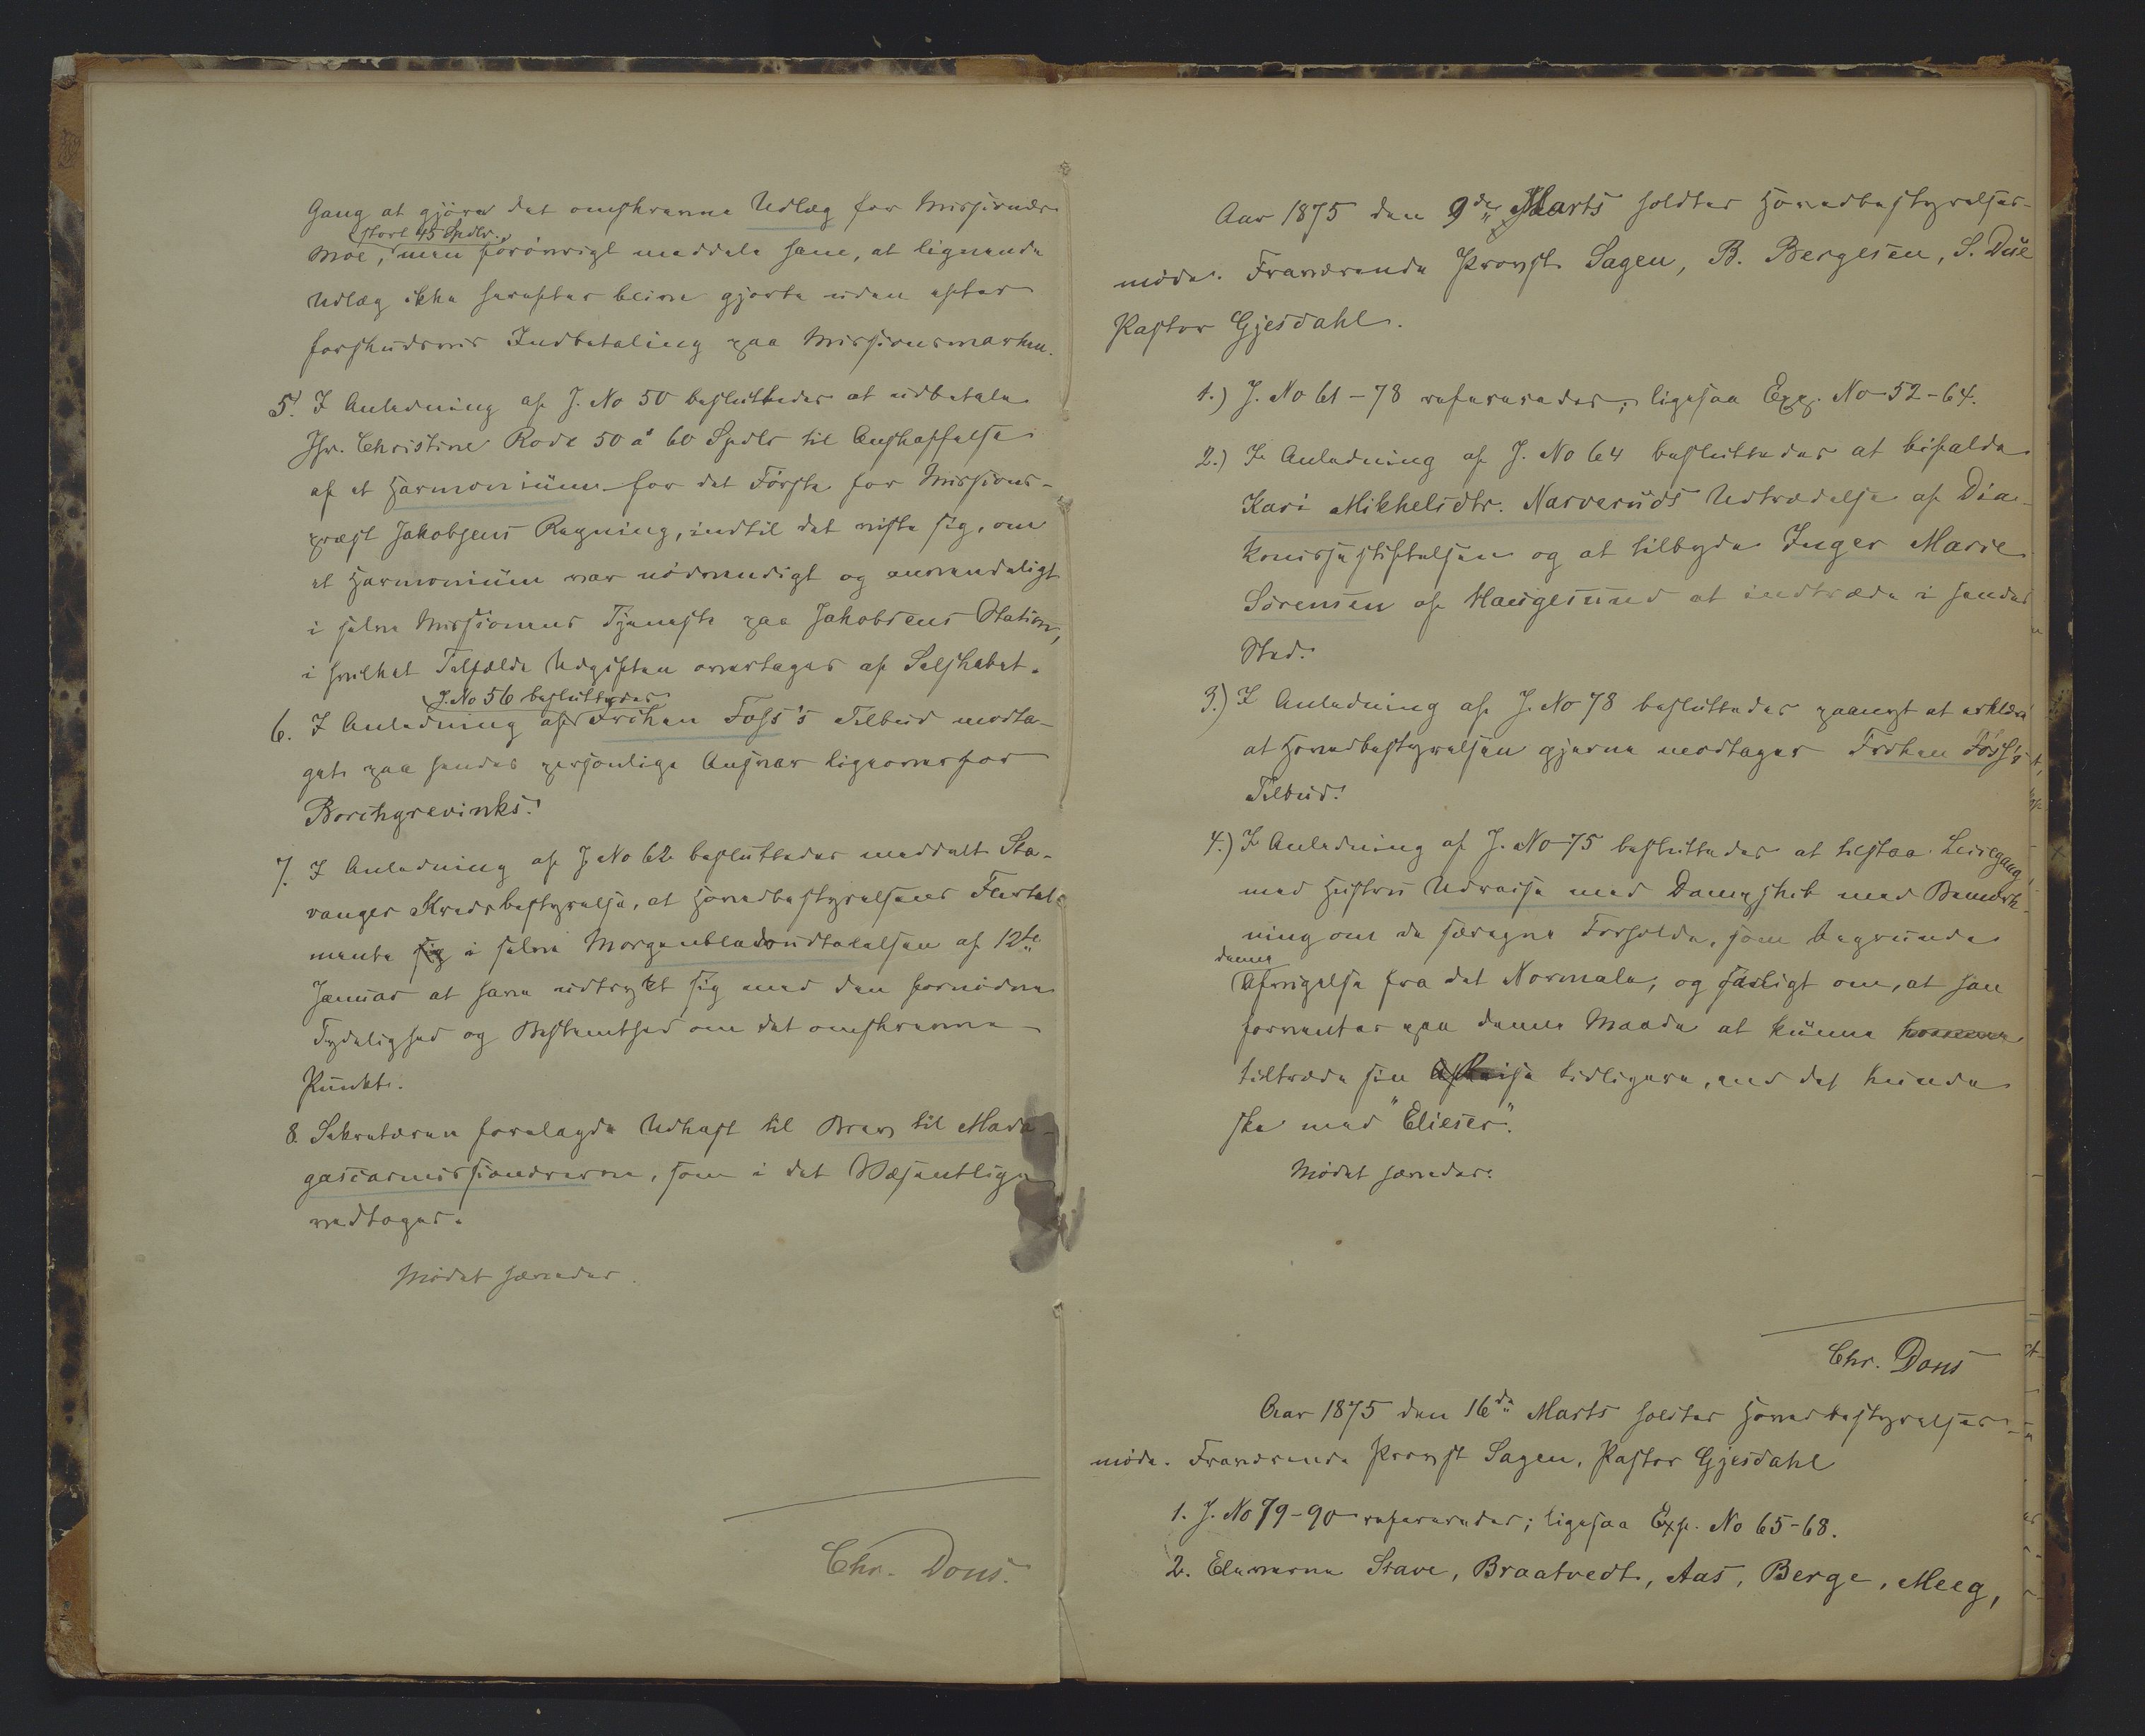 Gang at gjöre det omskrevne Udlæg for Missionær
stort 45 Spdlr.
Moe, men forövrigt meddele ham, at lignende
Udlæg ikke herefter bliver gjorte uden efter
forskudsvis Indbetaling paa Missionsmarken.
5. I Anledning af J. No 50 besluttedes at udbetale
Jfr. Christine Rode 50 à 60 Spdlr til Anskaffelse
af et Harmonium for det Förste for Missions-
præst Jakobsens Regning, indtil det viste sig, om
et Harmonium var nödvendigt og anvendeligt
i selve Missionens Tjeneste paa Jakobsens Station,
i hvilket Tilfælde Udgiften overtages af Selskabet.
J. No 56 besluttedes
6. I Anledning af Fröken Foss's Tilbud modta-
get paa hendes personlige Ansvar ligeoverfor
Borchgrevinks.
7. I Anledning af J. No 62 besluttedes meddelt Sta-
vanger Kredsbestyrelse, at Hovedbestyrelsens Flertal
mente sig i selve Morgenbladsudtalelsen af 12te
Januar at have udtrykt sig med den fornödne
Tydelighed og Bestemthed om det omskrevne
Punkt.
8. Sekretæren forelagde Udkast til Brev til Mada-
gascarmissionærerne, som i det Væsentlige
vedtoges.
Mödet hævedes.
Chr. Dons.
Aar 1875 den 9de Marts holdtes Hovedbestyrelses-
möde. Fraværende Provst Sagen, B. Bergesen, S. Due
Pastor Gjesdahl.
1.) J. No 61-78 refereredes; ligesaa Exp. No 52-64.
2.) I Anledning af J. No 64 besluttedes at bifalde
Kari Mikkelsdtr. Narveruds Udtrædelse af Dia-
konissestiftelsen og at tilbyde Inger Marie
Sörensen af Haugesund at indtræde i hendes
Sted.
3.) I Anledning af J. No 78 besluttedes paanyt at erklære
at Hovedbestyrelsen gjerne modtager Fröken Foss's
Tilbud.
4.) I Anledning af J. No 75 besluttedes at tilstaa Leiregang
med Hustru Udreise med Dampskib med Bemærk-
ning om de særegne Forholde, som begrunde
denne
Afvigelse fra det Normale, og særligt om, at han
forventes paa denne Maade at kunne komme
tiltræde sin Afreise tidligere, end det kunde
ske med "Elieser".
Mödet hævedes.
Chr. Dons
Aar 1875 den 16de Marts holdtes Hovedbestyrelses-
möde. Fraværende Provst Sagen, Pastor Gjesdahl
1. J. No 79-90 refereredes; ligesaa Exp. No 65-68.
2. Eleverne Stave, Braatvedt, Aas, Berge, Meeg,